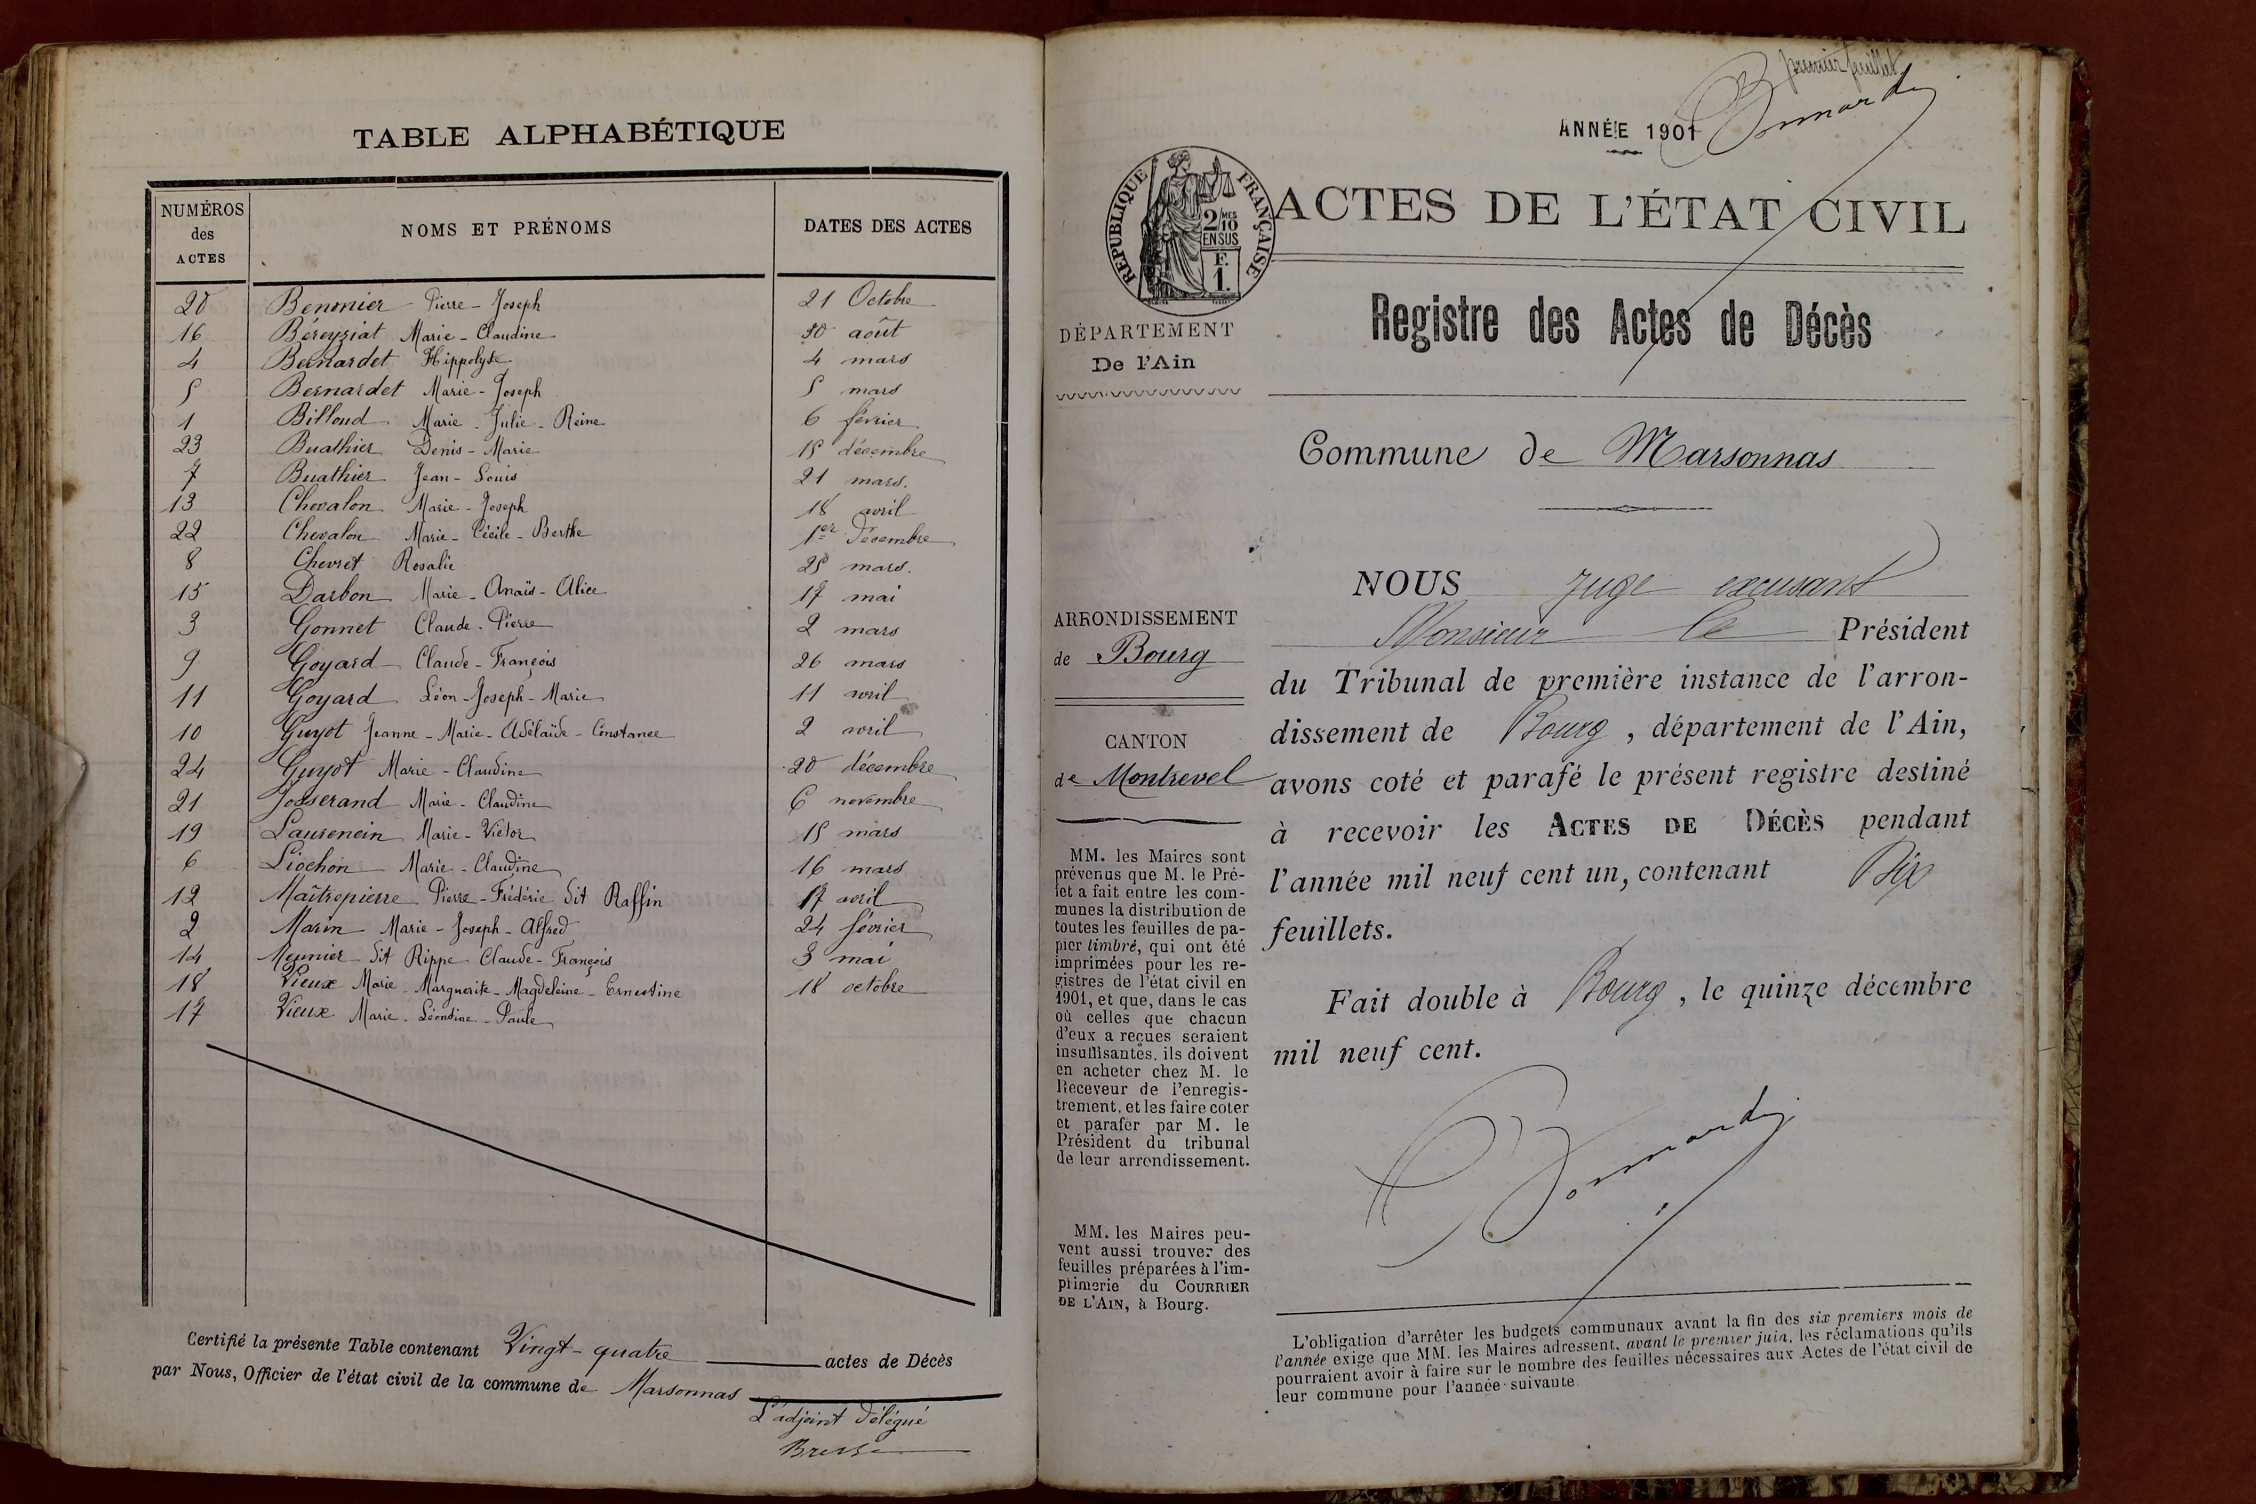 TABLE ALPHABÉTIQUE
NUMÉROS des ACTES NOMS ET PRÉNOMS DATES DES ACTES
20 Benonier Pierre - Joseph 21 Octobre
16 Béreyziat Marie - Claudine 20 août
4 Bernardet Hippolyte 4 mars
5 Bernardet Marie - Joseph 5 mars
1 Billoud Marie - Julie - Reine 6 février
23 Buathier Denis - Marie 15 décembre
7 Buathier Jean - Louis 21 mars.
13 Chevalon Marie - Joseph 18 avril
22 Chevalon Marie - Cécile - Berthe 1er Décembre
8 Chevret Rosalie 25 mars.
15 Darbon Marie - Anaïs - Alice 17 mai
3 Gonnet Claude - Pierre 2 mars
9 Goyard Claude - François 26 mars
11 Goyard Léon - Joseph - Marie 11 avril
10 Guyot Jeanne - Marie - Adélaïde - Constance 2 avril
24 Guyot Marie - Claudine 20 décembre
21 Josserand Marie - Claudine 6 novembre
19 Laurencin Marie - Victor 15 mars
6 Liochon Marie - Claudine 16 mars
12 Maîtrepierre Pierre - Frédéric dit Raffin 17 avril
2 Marin Marie - Joseph - Alfred 24 février
14 Meunier dit Rippe Claude - François 3 mai
18 Vieux Marie - Marguerite - Magdeleine - Ernestine 18 octobre
17 Vieux Marie - Léontine - Paule
Certifié la présente Table contenant Vingt - quatre actes de Décès
par Nous, Officier de l'état civil de la commune de Marsonnas
L'adjoint délégué
premier feuillet
ANNÉE 1901
RÉPUBLIQUE FRANÇAISE
2/MES 10 EN SUS
F. 1.
ACTES DE L'ÉTAT CIVIL
DÉPARTEMENT
De l'Ain
Registre des Actes de Décès
Commune de Marsonnas
ARRONDISSEMENT
de Bourg
CANTON
de Montrevel
MM. les Maires sont
prévenus que M. le Pré-
fet a fait entre les com-
munes la distribution de
toutes les feuilles de pa-
pier timbré, qui ont été
imprimées pour les re-
gistres de l'état civil en
1901, et que, dans le cas
où celles que chacun
d'eux a reçues seraient
insuffisantes, ils doivent
en acheter chez M. le
Receveur de l'enregis-
trement, et les faire coter
et parafer par M. le
Président du tribunal
de leur arrondissement.
MM. les Maires peu-
vent aussi trouver des
feuilles préparées à l'im-
primerie du COURRIER
DE L'AIN, à Bourg.
NOUS Juge excusant
Monsieur le Président
du Tribunal de première instance de l'arron-
dissement de Bourg, département de l'Ain,
avons coté et parafé le présent registre destiné
à recevoir les ACTES DE DÉCÈS pendant
l'année mil neuf cent un, contenant Dix
feuillets.
Fait double à Bourg, le quinze décembre
mil neuf cent.
L'obligation d'arrêter les budgets communaux avant la fin des six premiers mois de
l'année exige que MM. les Maires adressent, avant le premier juin, les réclamations qu'ils
pourraient avoir à faire sur le nombre des feuilles nécessaires aux Actes de l'état civil de
leur commune pour l'année suivante